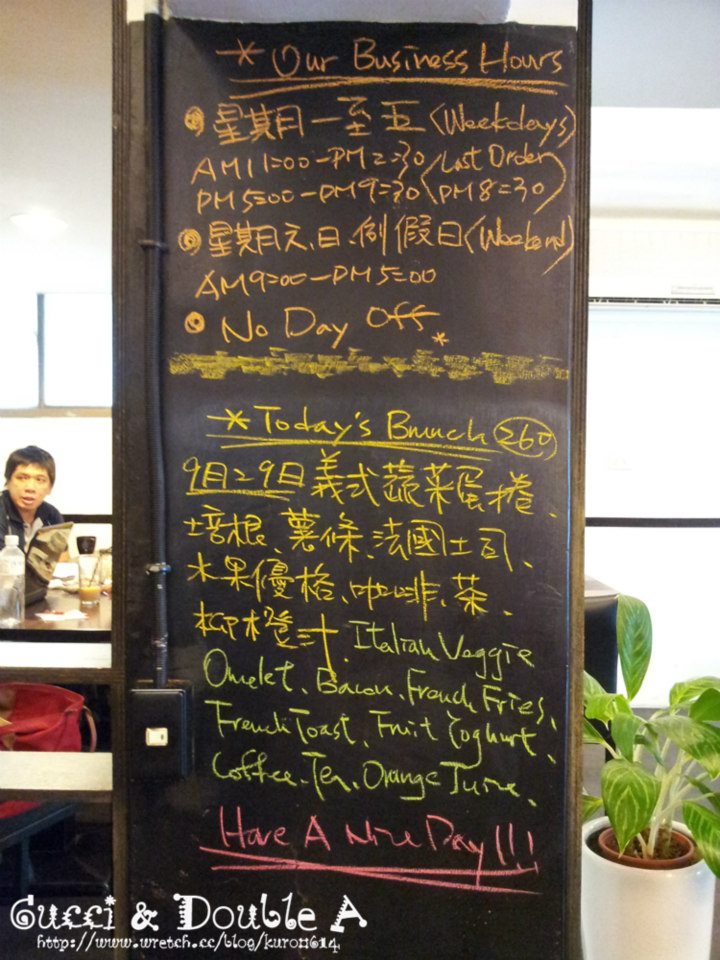 * Our Business Hours
星期一至五(Weekdays)
AM11:00-PM2:30 (Last Order
PM5:00-PM9:30 (PM8:30)
星期六.日.例假日(Weekend)
AM9:00-PM5:00
No Day Off *
* Today's Brunch 260
9月29日義式蔬菜蛋捲、
培根、薯條、法國土司、
水果優格、咖啡、茶、
柳橙汁. Italian Veggie
Omelet、Bacon、French Fries、
French Toast、Fruit Yoghurt、
Coffee、Tea、Orange Juice、
Have A Nice Day!!!
Gucci & Double A
http://www.wretch.cc/blog/kuro1614